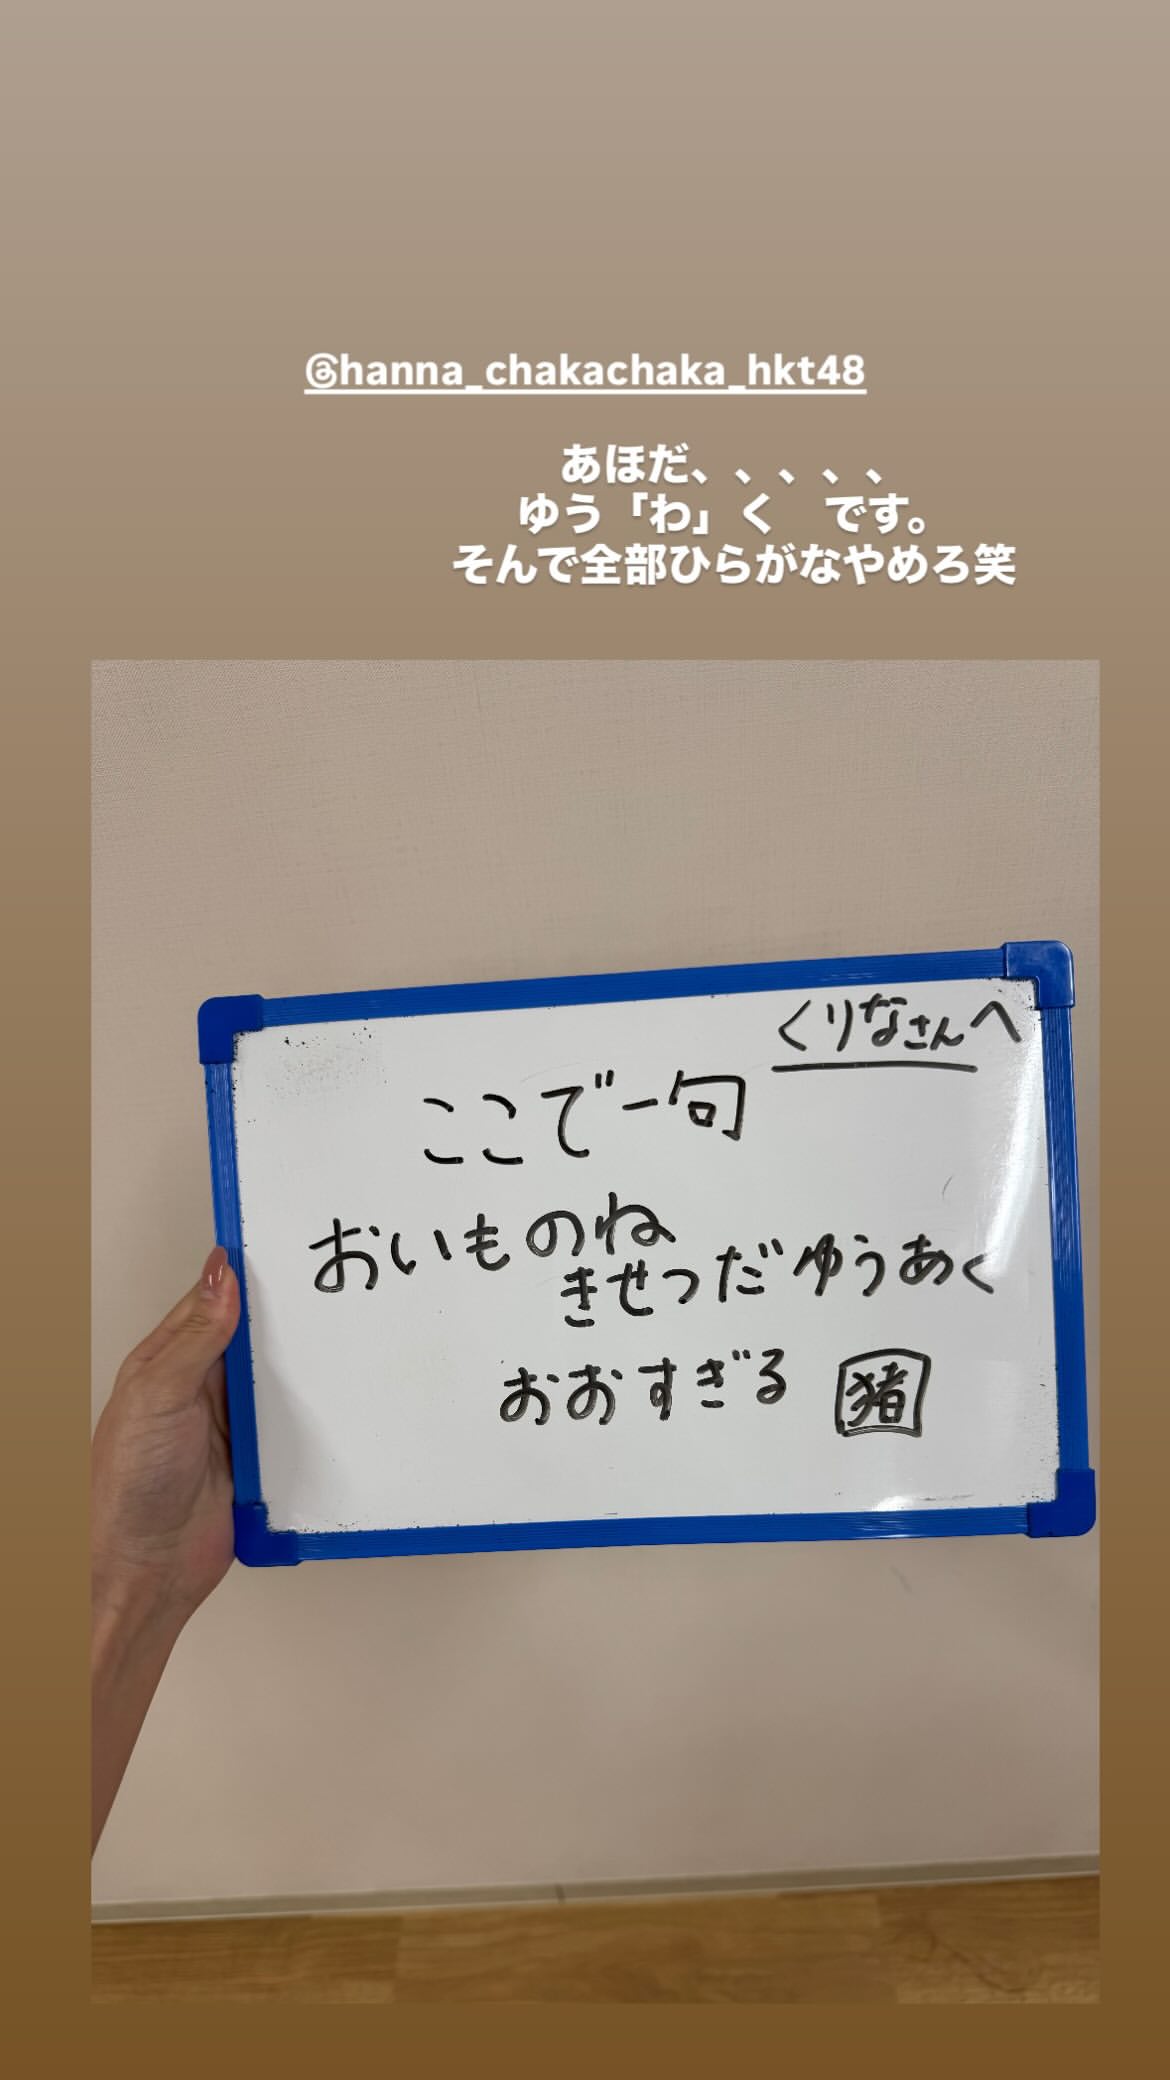 @hanna_chakachaka_hkt48
あほだ、、、、、
ゆう「わ」く　です。
そんで全部ひらがなやめろ笑
くりなさんへ
ここで一句
おいものね
きせつだゆうあく
おおすぎる 猪